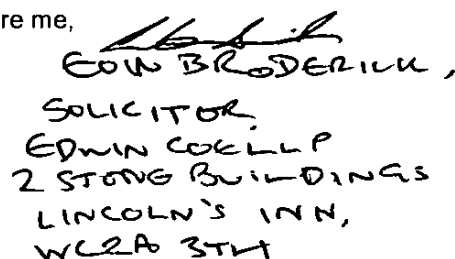 re me,
EOIN BRODERICK,
SOLICITOR
EDWIN COE LLP
2 STONE BUILDINGS
LINCOLN'S INN,
WC2A 3TH